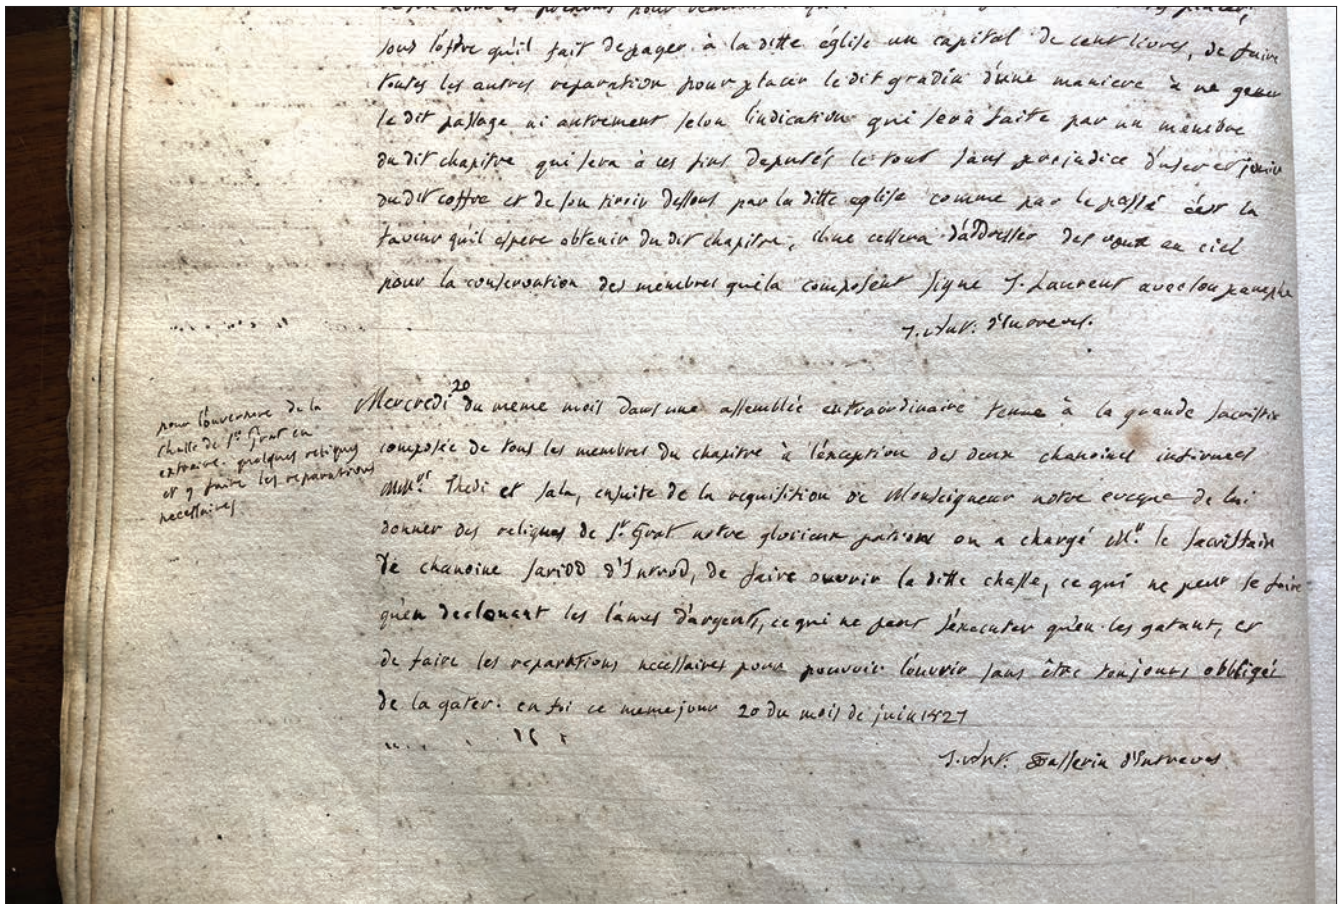 sous l'offre qu'il fait de payer à la ditte église un capital de cent livres, de faire
toutes les autres reparation pour placer le dit gradin d'une maniere à ne gener
le dit passage ni autrement selon l'indication qui sera faite par un membre
du dit chapitre qui sera à ces fins deputés le tout sans prejudice d'user et jouir
du dit coffre et de son tiroir dessous par la ditte eglise comme par le passé c'est la
faveur qu'il espere obtenir du dit chapitre, il ne cessera d'addresser des vœux au ciel
pour la conservation des membres qui la composent signe J. Laurent avec son paraphe
J. Ant. d'Introd.
pour l'ouverture de la
chasse de St. Grat en
extraire quelques reliques
et y faire les reparations
necessaires
Mercredi 20 du meme mois dans une assemblée extraordinaire tenue à la grande sacristie
composée de tous les membres du chapitre à l'éxception des deux chanoines infirmes
Mrs. Thedi et Sala, ensuite de la requisition de Monseigneur notre eveque de lui
donner des reliques de St. Grat notre glorieux patron on a chargé Mr. le sacristain
le chanoine Sariod d'Introd, de faire ouvrir la ditte chasse, ce qui ne peut se faire
qu'en declouant les lames d'argents, ce qui ne peut s'éxecuter qu'en les gatant, et
de faire les reparations necessaires pour pouvoir l'ouvrir sans être toujours obbligés
de la gater. en foi ce meme jour 20 du mois de juin 1827
J. Ant. Passerin d'Entreves